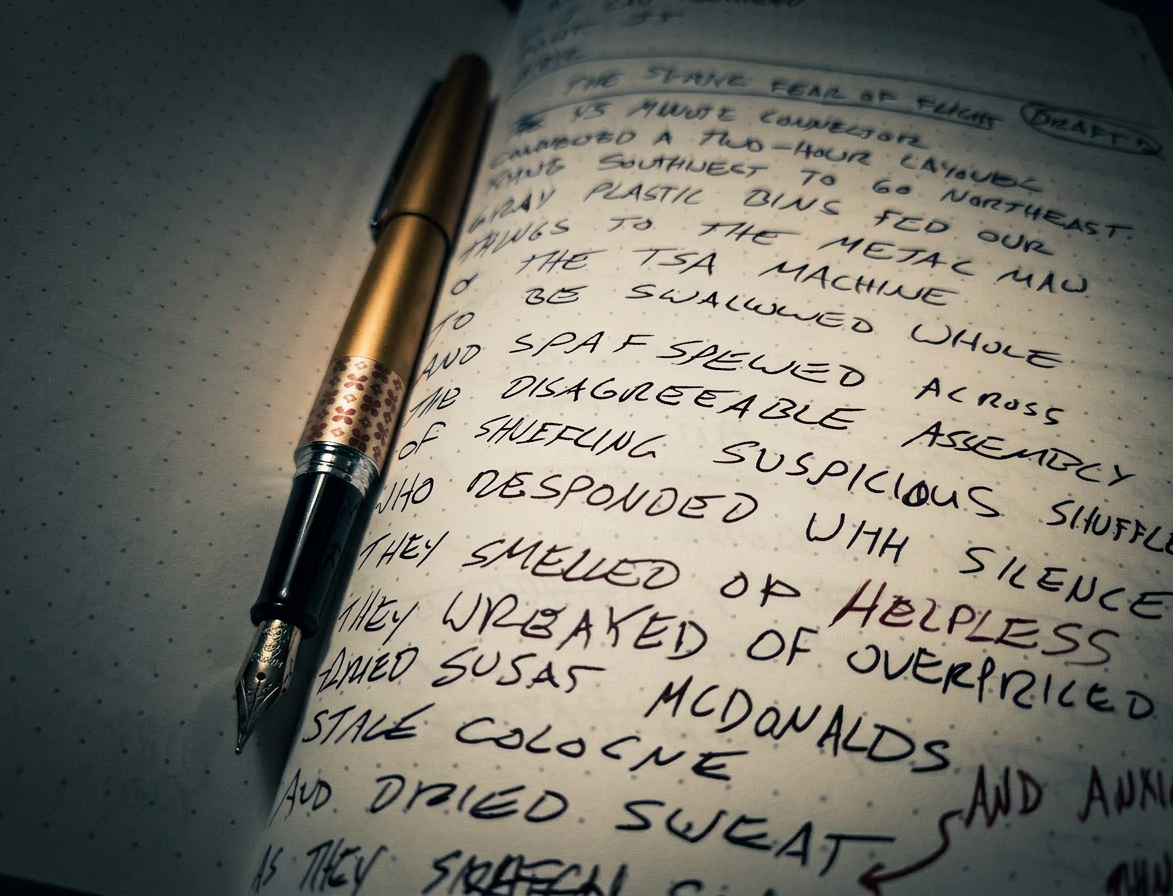 THE FEAR OF FLIGHT DRAFT
45 MINUTE CONNECTOR
A TWO-HOUR LAYOVER
GOING SOUTHWEST TO GO NORTHEAST.
GRAY PLASTIC BINS FED OUR
THINGS TO THE METAL MAW
OF THE TSA MACHINE
TO BE SWALLOWED WHOLE
AND SPAT SPEWED ACROSS
THE DISAGREEABLE ASSEMBLY
OF SHUFFLING SUSPICIOUS SHUFFLE
WHO RESPONDED WITH SILENCE
THEY SMELLED OF HELPLESS
THEY WREAKED OF OVERPRICED
DRIED MCDONALDS
STALE COLOGNE
AND ANXI
AND DRIED SWEAT
AS THEY